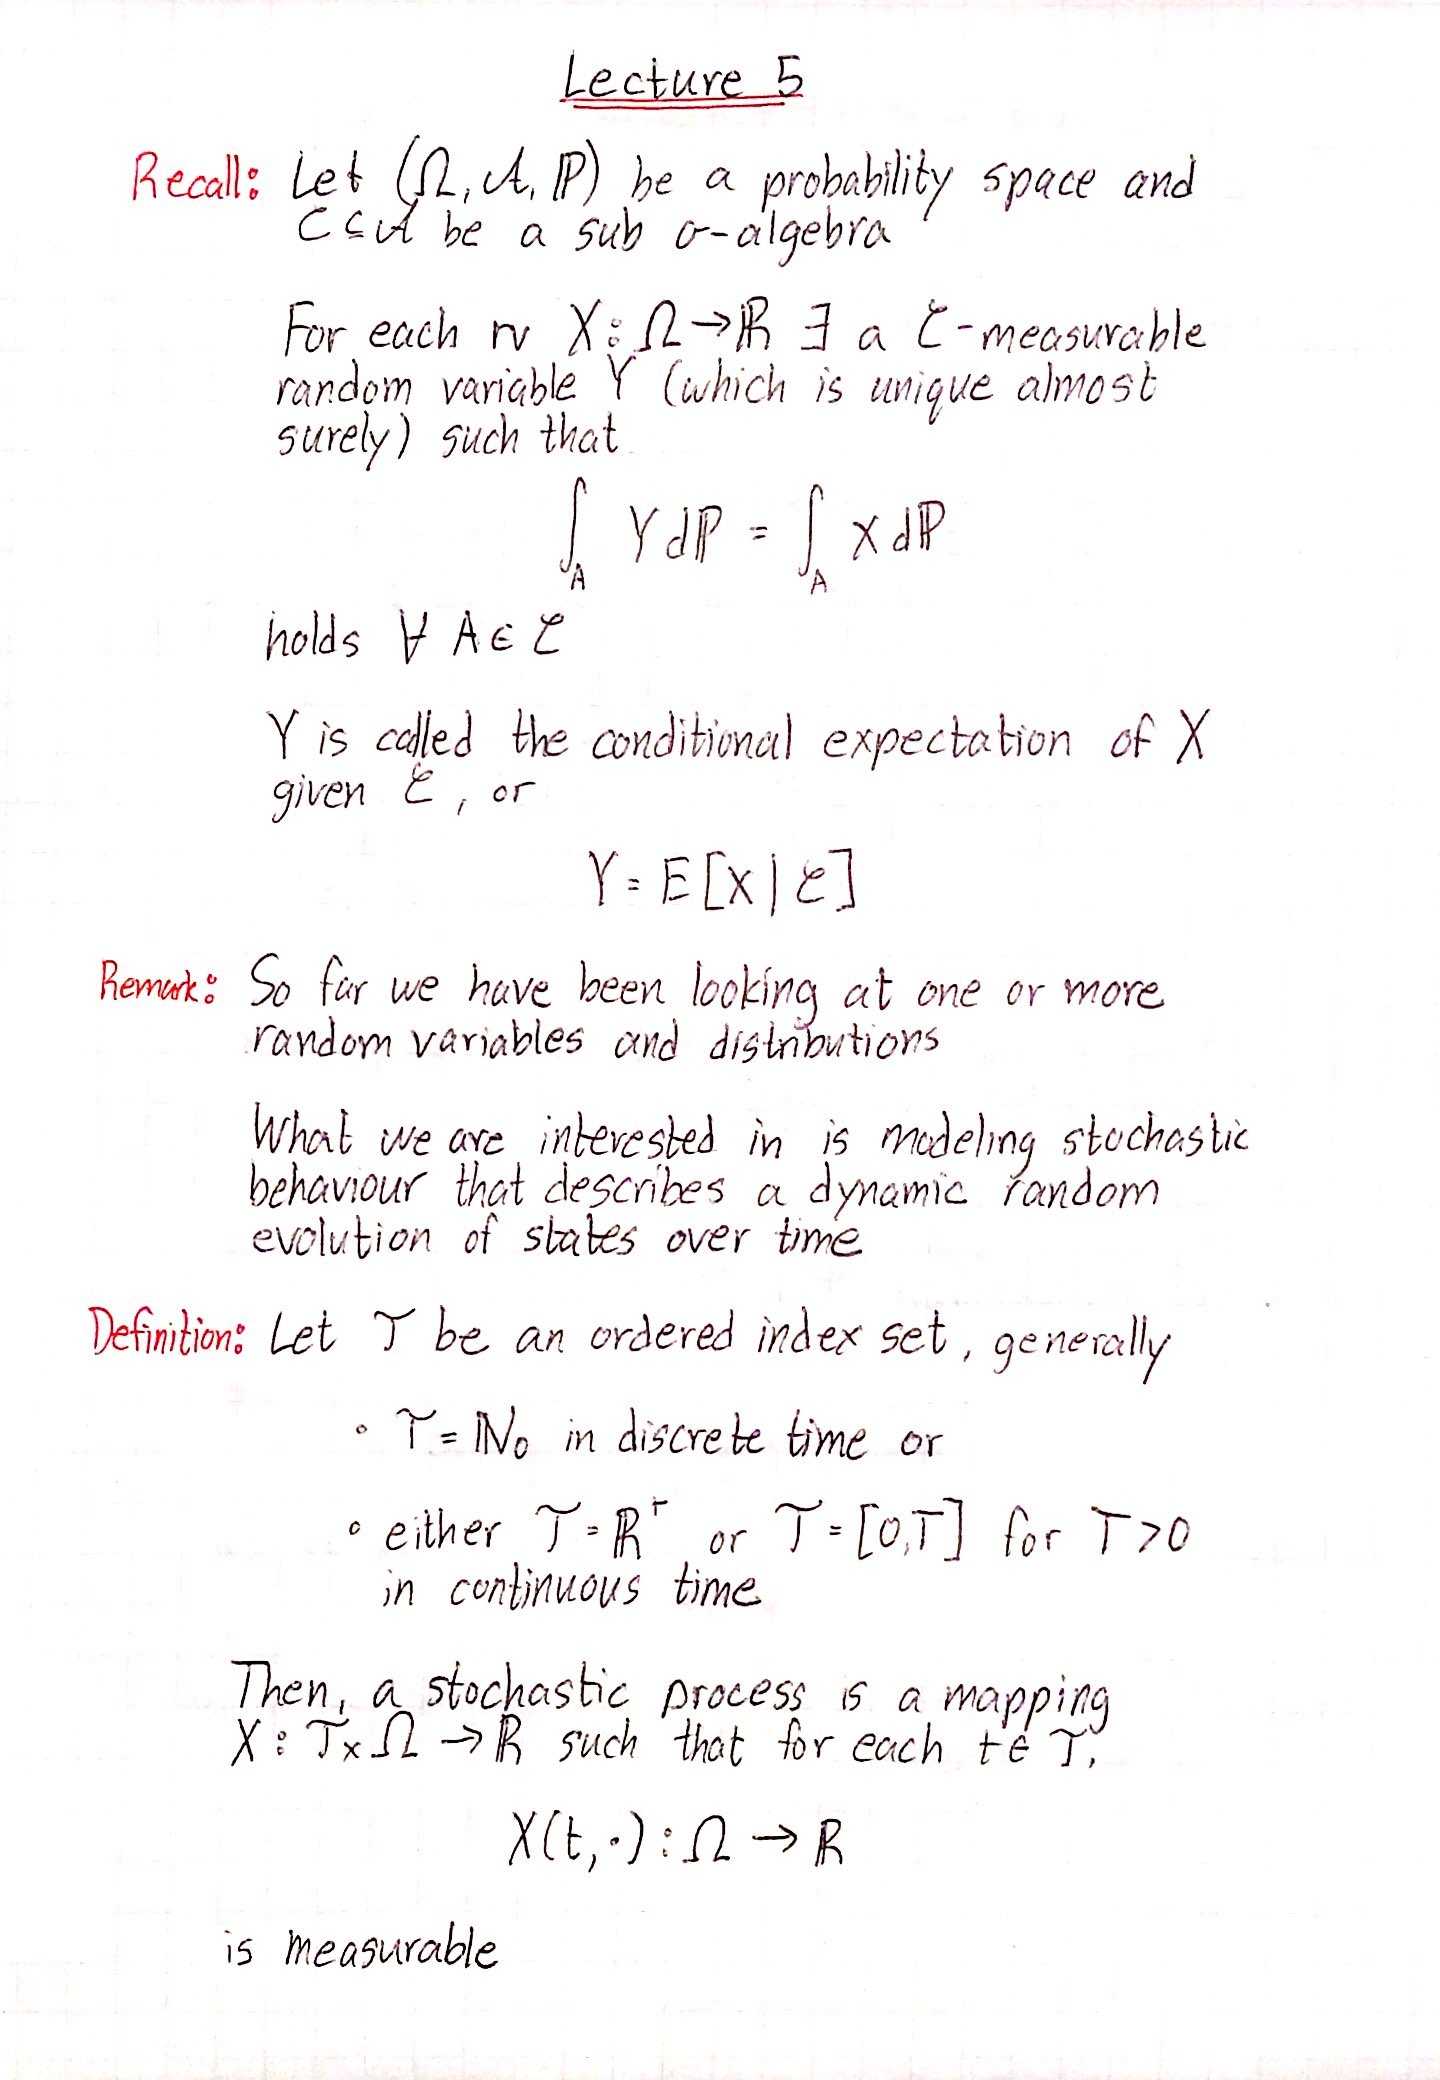 Lecture 5
Recall: Let (Ω, 𝒜, ℙ) be a probability space and
𝒞 ⊆ 𝒜 be a sub σ-algebra
For each rv X : Ω → ℝ ∃ a 𝒞-measurable
random variable Y (which is unique almost
surely) such that
∫_A Y dℙ = ∫_A X dℙ
holds ∀ A ∈ 𝒞
Y is called the conditional expectation of X
given 𝒞, or
Y = E[X | 𝒞]
Remark: So far we have been looking at one or more
random variables and distributions
What we are interested in is modeling stochastic
behaviour that describes a dynamic random
evolution of states over time
Definition: Let 𝒯 be an ordered index set, generally
∘ 𝒯 = ℕ₀ in discrete time or
∘ either 𝒯 = ℝ⁺ or 𝒯 = [0,T] for T > 0
in continuous time
Then, a stochastic process is a mapping
X : 𝒯 × Ω → ℝ such that for each t ∈ 𝒯,
X(t, ·) : Ω → ℝ
is measurable